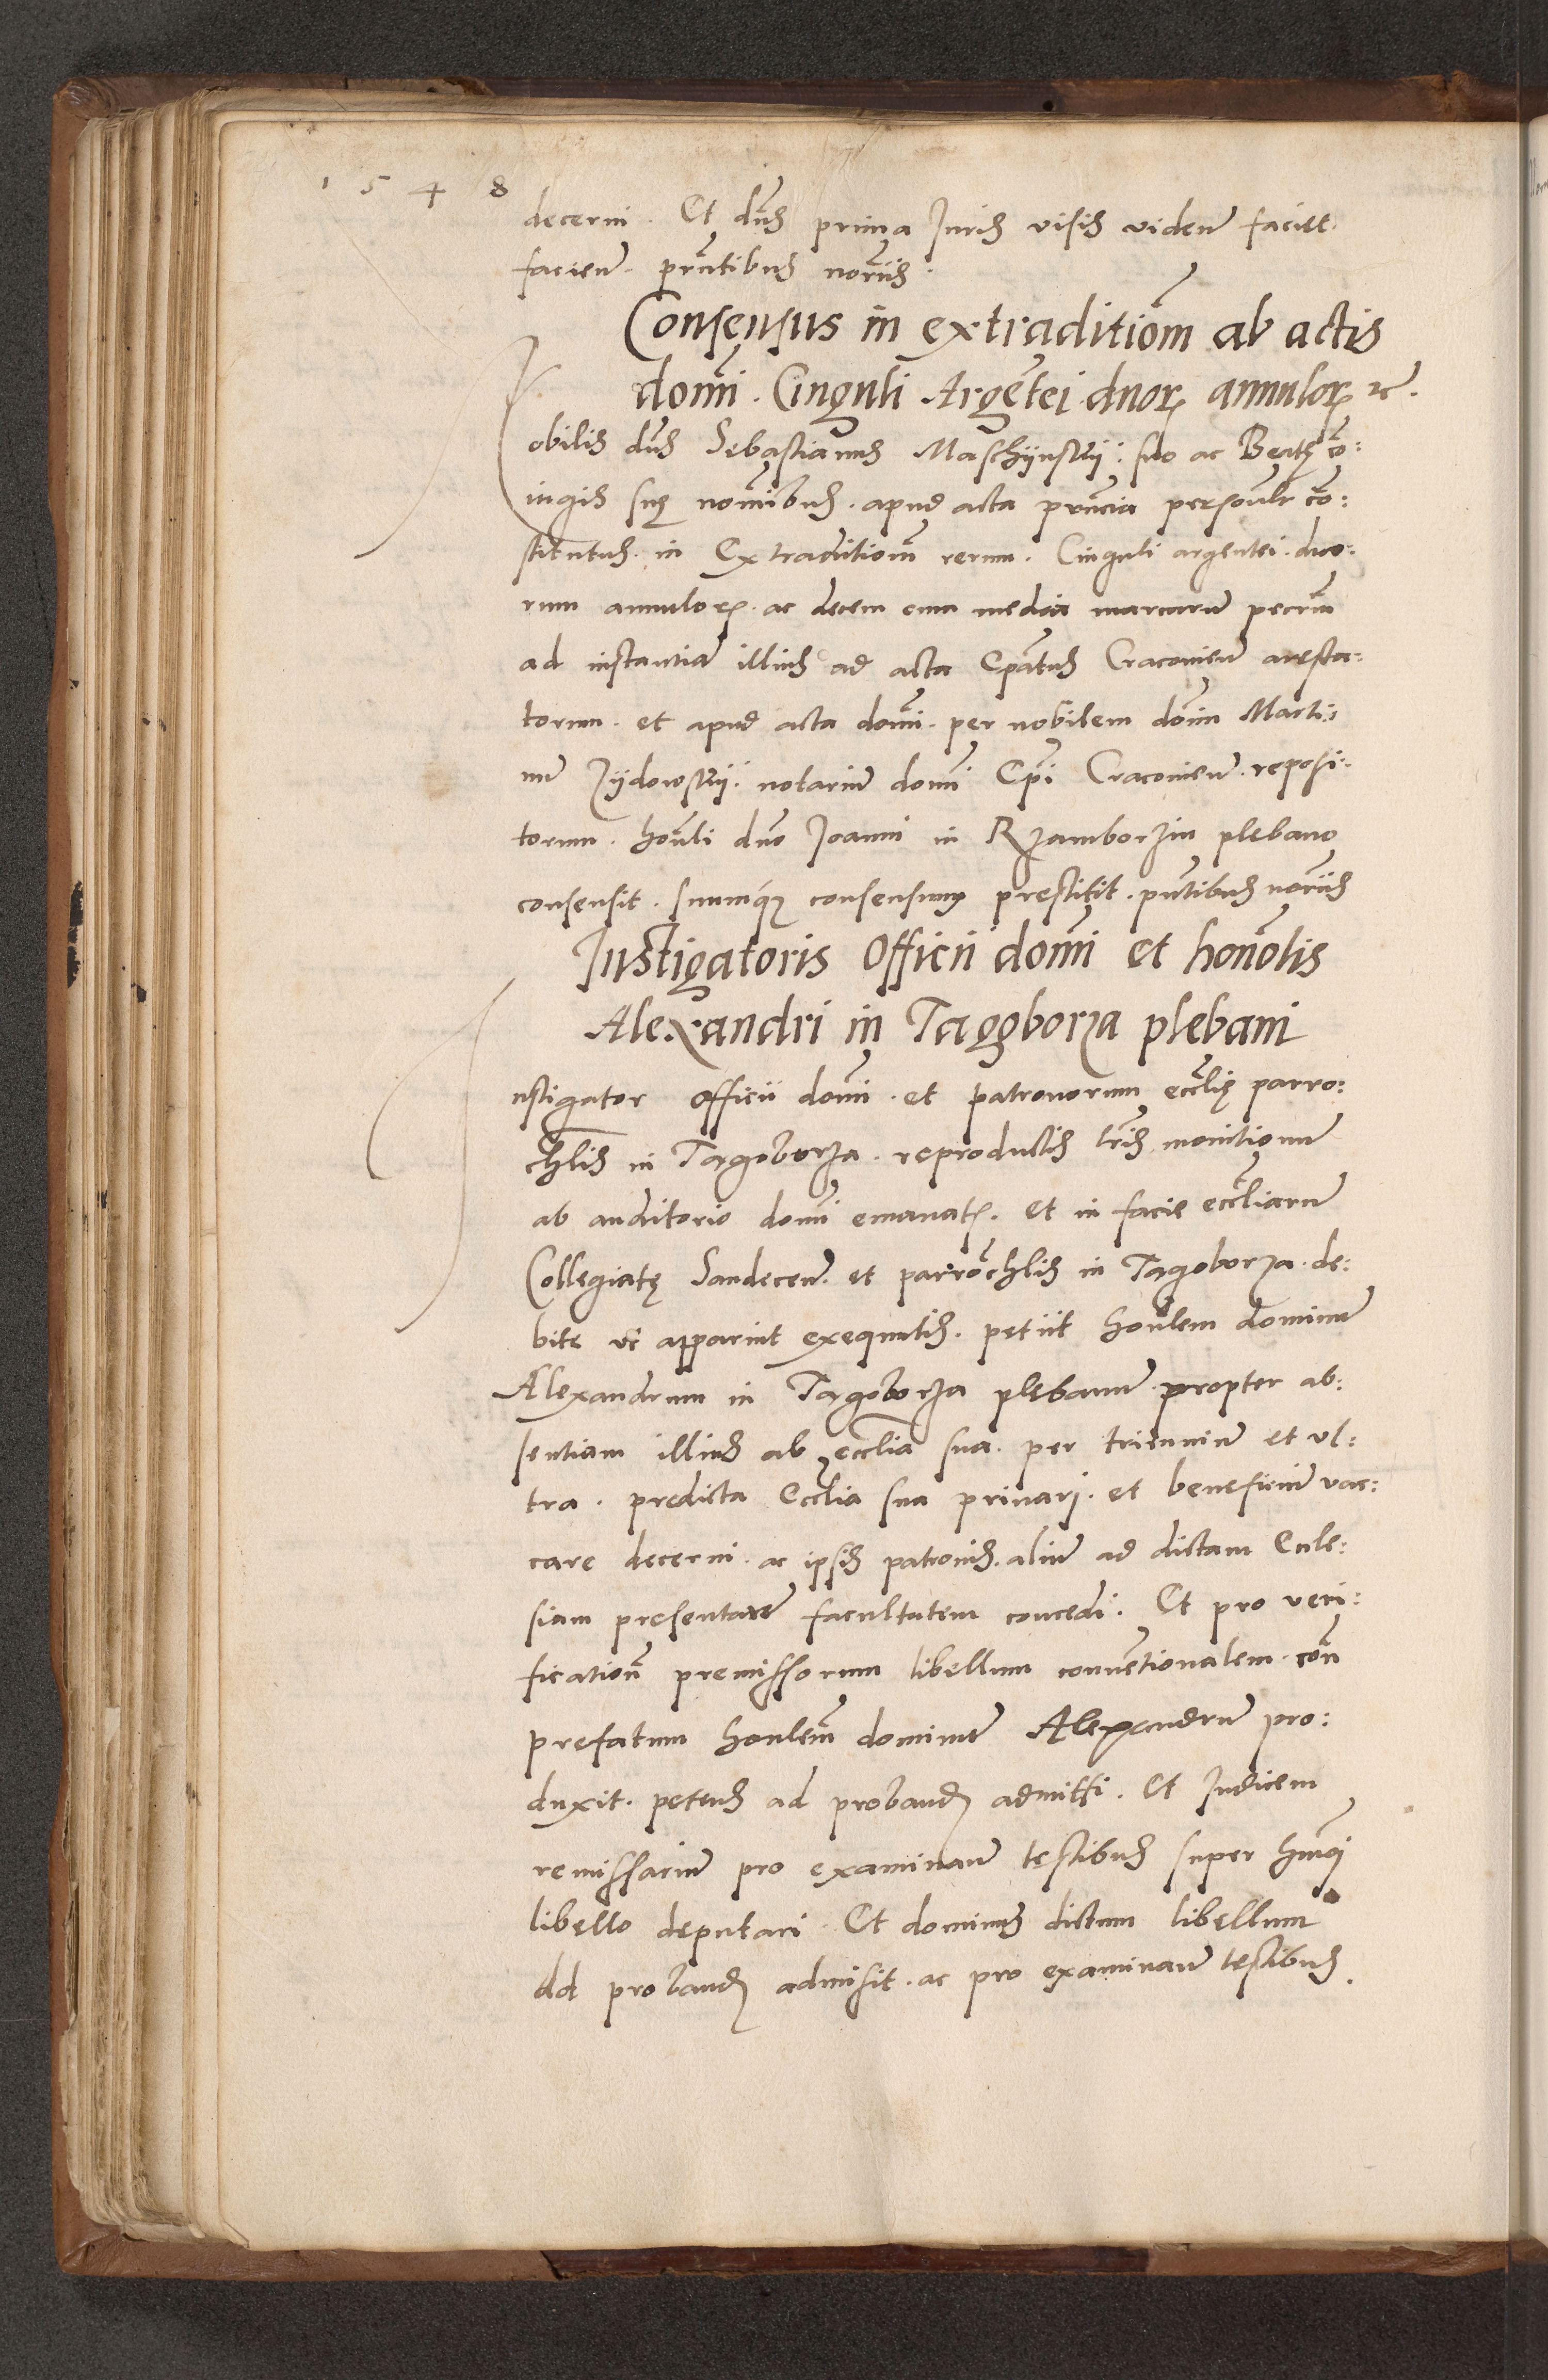 1 5 4 8
decerni. Et dn̄s prima Juris visis videnᵉ faciet
facienᵉ. pn̄tibus notīis.
Consensus in extraditiōm ab actis
domī. Cinguli Argētei duorꝝ annulorꝝ ꝛc.
Nobilis dn̄s Sebastianus Maschÿnskÿ: suo ac
ingis suę nomībus. apud acta pn̄cia personlr̄ cō:
stitutus. in Extraditiōm rerum. Cinguli argentei. duo:
rum annulorꝝ. ac decem cum media marcarū pecnīę
ad instantiā illius ad acta Epātus Cracovienᵉ aresta:
torum. et apud acta domī. per nobilem domīm Marti:
nū Zÿdowskÿ: notariū domī Epī Cracovienᵉ. reposi:
torum. honli dn̄o Joanni in Rzamborzin plebano
consensit. suumqꝫ consensum prestitit. pn̄tibus notīis
Instigatoris Officii domī et honōlis
Alexandri in Tagoborza plebani
Instigator officii domī. et patronorum eccl̄ię parro:
chlis in Tagoborza. reproductis lr̄is monitionū
ab auditorio domī emanatꝭ. et in facie eccl̄iarū
Collegiatę Sandecenᵉ. et parrōchlis in Tagoborza. de:
bite ut apparuit exequutis. petiit honlem dominū
Alexandrum in Tagoborza plebanū propter ab:
sentiam illius ab eccl̄ia sua. per trienniū et ul:
tra. predicta Eccl̄ia sua privari. et beneficiū vac:
care decerni. ac ipsis patronis. aliū ad dictam Eccle:
siam presentare facultatem concedi. Et pro veri:
ficatiōn premissorum libellum conventionalem. con̄
prefatum honlem̄ dominū Alexandrū pro:
duxit. petens ad proband̄ admitti. Et Judicem
remissariū pro examinanᵉ testibus super hm̄oi
libello deputari. Et dominus dictum libellum
ad proband̄ admisit. ac pro examinanᵉ testibus.